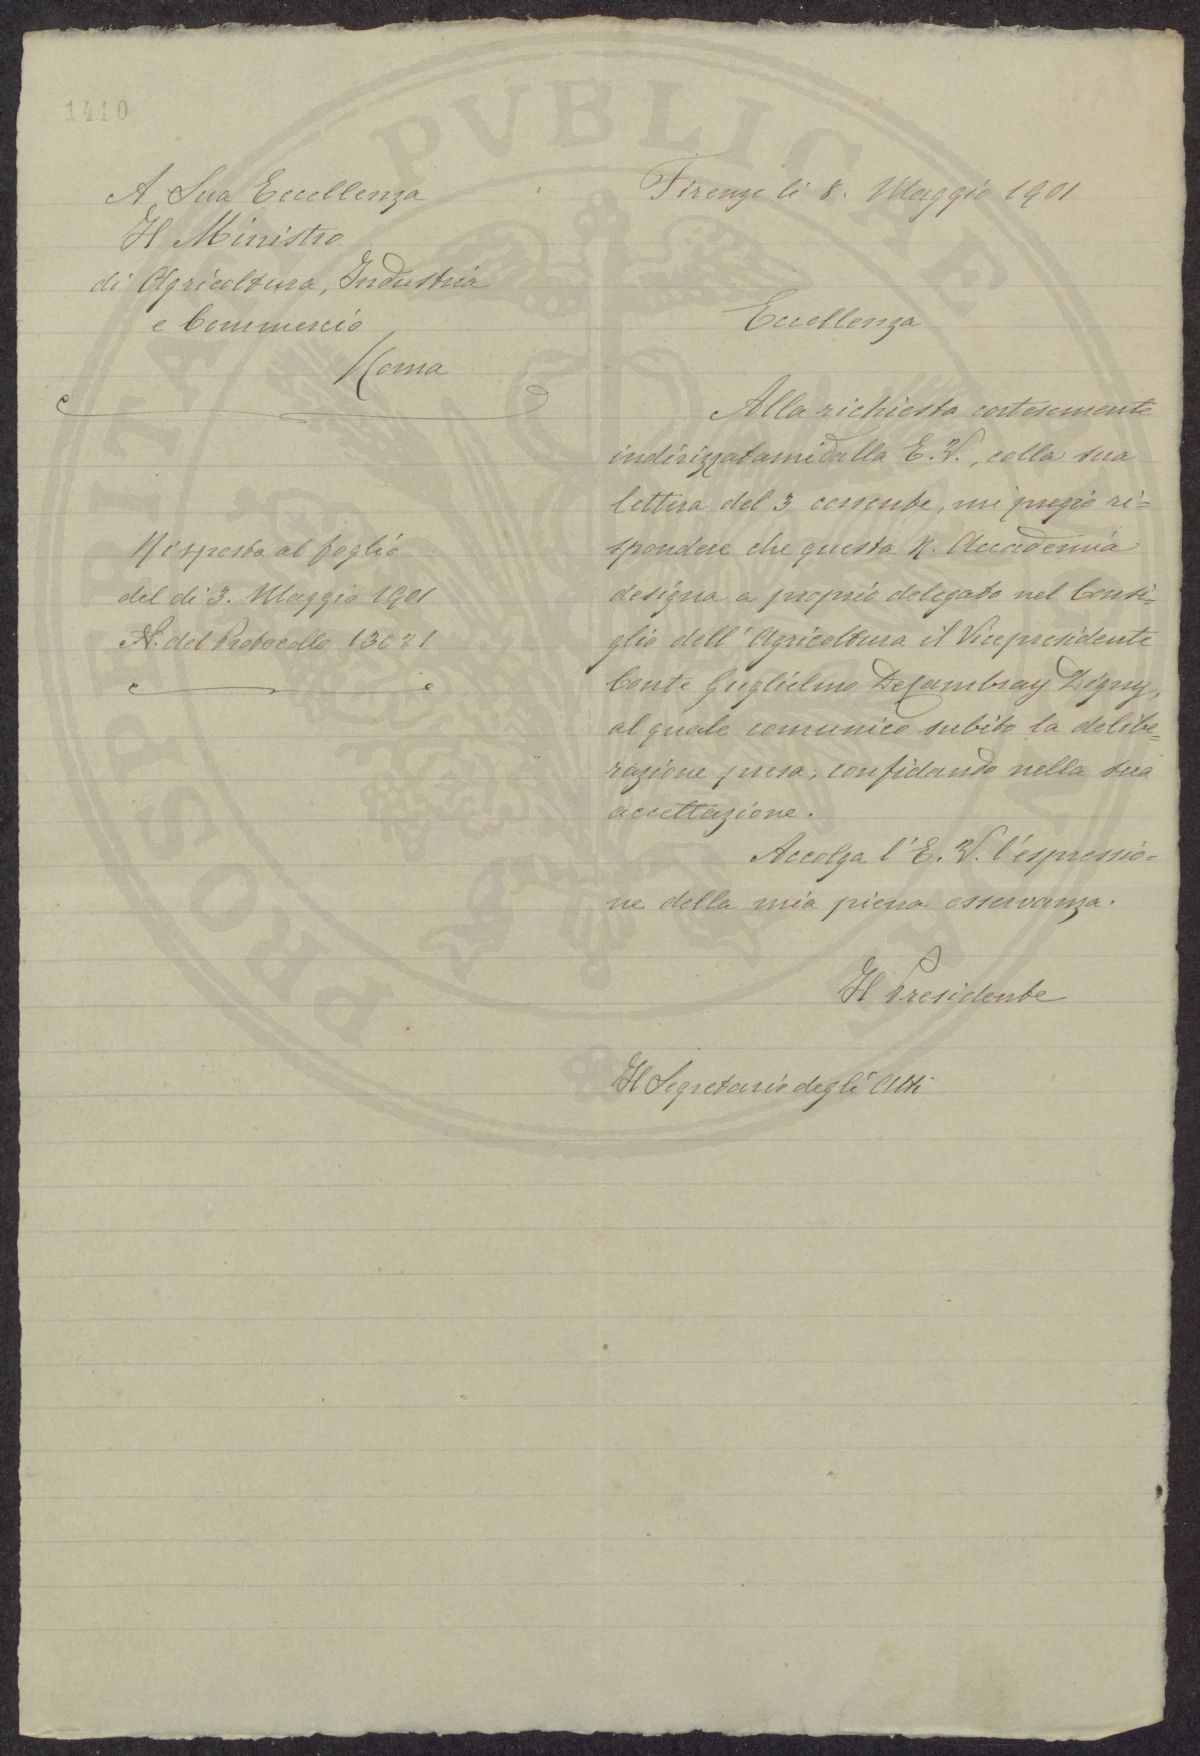 1410
A Sua Eccellenza
Il Ministro
di Agricoltura, Industria
e Commercio
Roma
Risposta al foglio
del di 3. Maggio 1901
N. del Protocollo
Firenze li 8. Maggio 1901
Eccellenza
Alla richiesta cortesemente
indirizzatami dalla E. V., colla sua
lettera del 3 corrente, mi pregio ri=
spondere che questa R. Accademia
designa a proprio delegato nel Consi=
glio dell'Agricoltura il Vicepresidente
Conte Guglielmo De Cambray Digny,
al quale comunico subito la delibe=
razione presa, confidando nella sua
accettazione.
Accolga l'E. V. l'espressio=
ne della mia piena osservanza.
Il Presidente
Il Segretario degli Atti
PROSPERITATI PVBLICAE